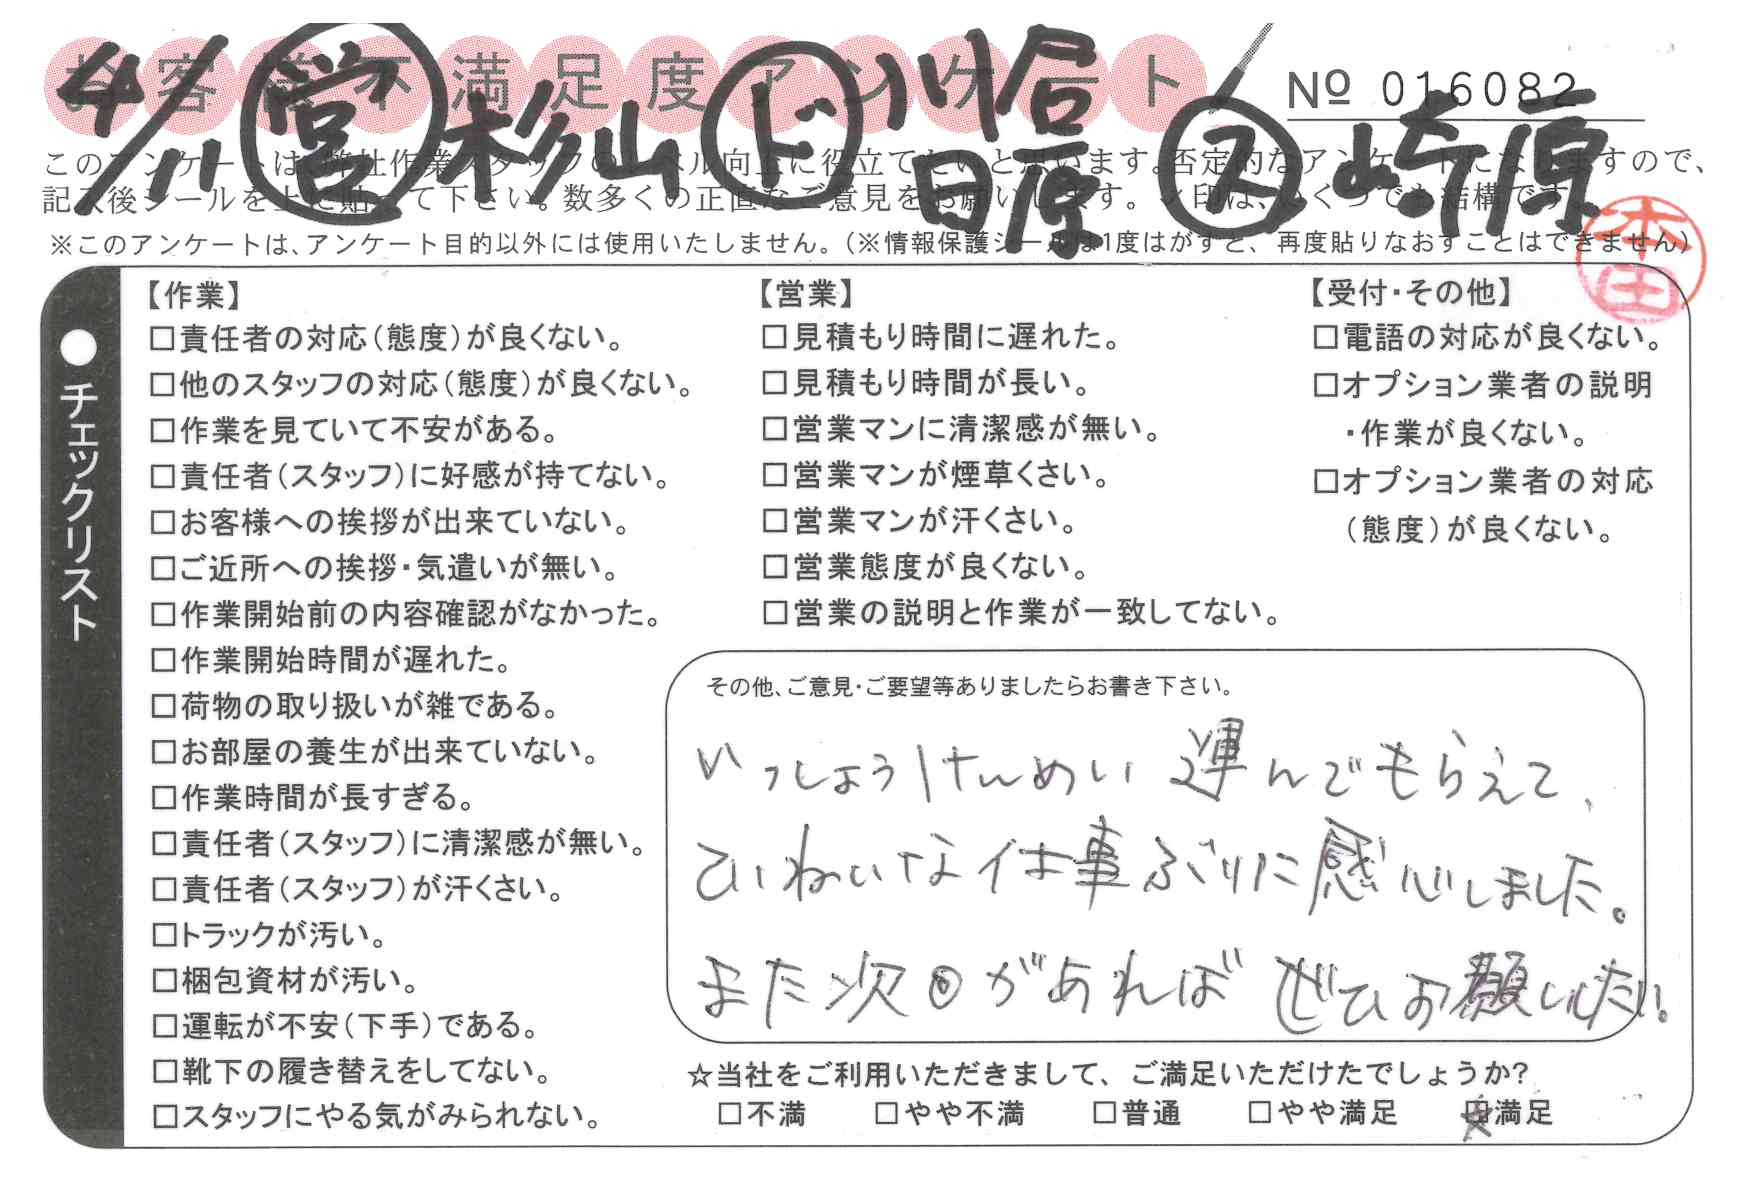 お客様不満足度アンケート
4/11 営 杉山 ド 川合 日原 ス 崎原
Nº 016082
このアンケートは、弊社作業スタッフのレベル向上に役立てたいと思います。否定的なアンケートになりますので、
記入後シールを上に貼って下さい。数多くの正直なご意見をお願いします。レ印は、いくつでも結構です。
※このアンケートは、アンケート目的以外には使用いたしません。（※情報保護シールは1度はがすと、再度貼りなおすことはできません）
本田
●チェックリスト
【作業】
□責任者の対応（態度）が良くない。
□他のスタッフの対応（態度）が良くない。
□作業を見ていて不安がある。
□責任者（スタッフ）に好感が持てない。
□お客様への挨拶が出来ていない。
□ご近所への挨拶・気遣いが無い。
□作業開始前の内容確認がなかった。
□作業開始時間が遅れた。
□荷物の取り扱いが雑である。
□お部屋の養生が出来ていない。
□作業時間が長すぎる。
□責任者（スタッフ）に清潔感が無い。
□責任者（スタッフ）が汗くさい。
□トラックが汚い。
□梱包資材が汚い。
□運転が不安（下手）である。
□靴下の履き替えをしてない。
□スタッフにやる気がみられない。
【営業】
□見積もり時間に遅れた。
□見積もり時間が長い。
□営業マンに清潔感が無い。
□営業マンが煙草くさい。
□営業マンが汗くさい。
□営業態度が良くない。
□営業の説明と作業が一致してない。
【受付・その他】
□電話の対応が良くない。
□オプション業者の説明
・作業が良くない。
□オプション業者の対応
（態度）が良くない。
その他、ご意見・ご要望等ありましたらお書き下さい。
いっしょうけんめい運んでもらえて、
ていねいな仕事ぶりに感心しました。
また次回があればぜひお願いしたい。
☆当社をご利用いただきまして、ご満足いただけたでしょうか?
□不満 □やや不満 □普通 □やや満足 □満足